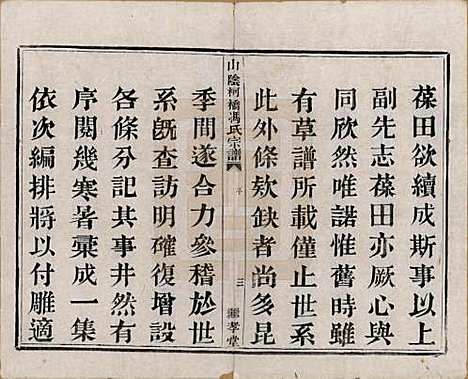 葆田欲續成斯事以上
副先志葆田亦厥心與
同欣然唯諾惟舊時雖
有草譜所載僅止世系
此外條欵缺者尚多昆
山陰柯橋馮氏宗譜
三
孝堂
季間遂合力參稽於世
系旣查訪明確復增設
各條分記其事井然有
序閱幾寒暑彙成一集
依次編排將以付雕適